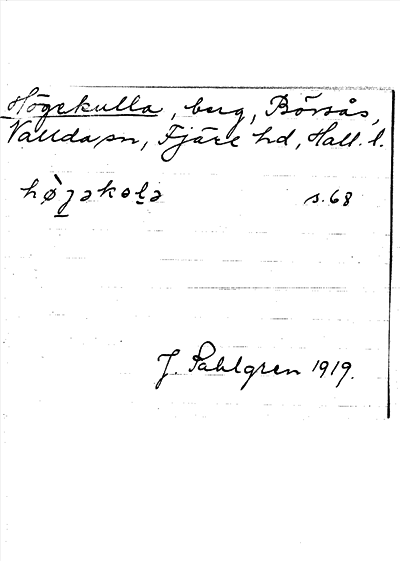 Högekulla, berg, Börsås,
Vallda sn, Fjäre hd, Hall. l.
hø̀jəkolə s.68
J. Sahlgren 1919.